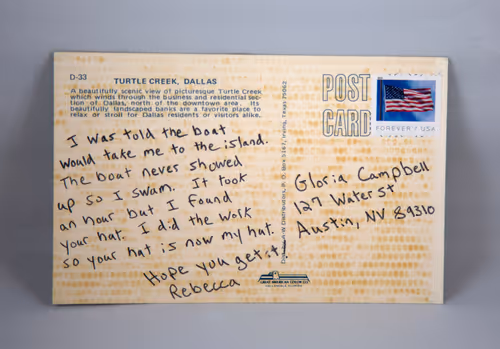 D-33
TURTLE CREEK, DALLAS
A beautifully scenic view of picturesque Turtle Creek
which winds through the business and residential sec-
tion of Dallas, north of the downtown area. Its
beautifully landscaped banks are a favorite place to
relax or stroll for Dallas residents or visitors alike.
I was told the boat
would take me to the island.
The boat never showed
up so I swam. It took
an hour but I found
your hat. I did the work
so your hat is now my hat.
Hope you get it
Rebecca
Dist. by A-W Distributors, P. O. Box 3147, Irving, Texas 75062
GREAT AMERICAN COLOR CO.
POST
CARD
FOREVER / USA
Gloria Campbell
127 Water st
Austin, NV 89310